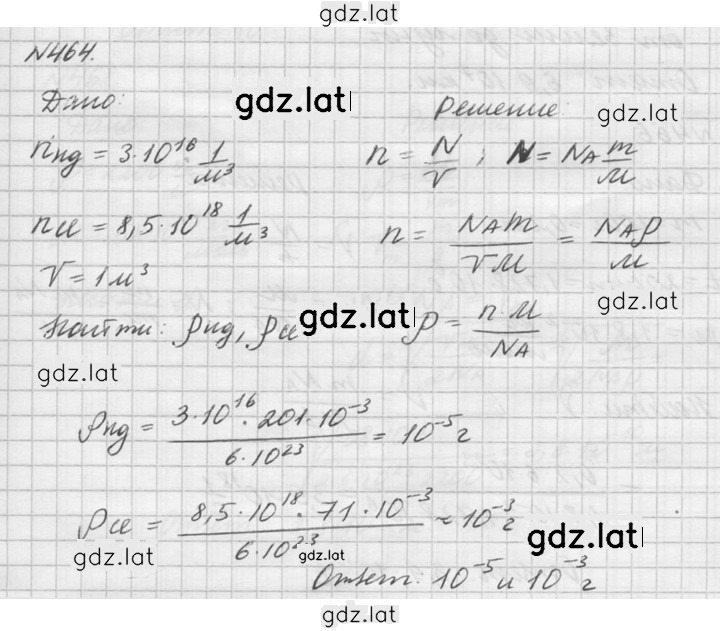 gdz.lat
N464.
Дано:
gdz.lat
Решение:
gdz.lat
nнд = 3·10^16 1/м^3
n = N/V ; N = NA m/M
nсе = 8,5·10^18 1/м^3
n = NAm/VM = NAρ/M
V = 1м^3
gdz.lat
Найти: ρнд, ρсе
gdz.lat
ρ = n·M/NA
gdz.lat
ρнд = 3·10^16·201·10^-3/6·10^23 = 10^-5 г
ρсе = 8,5·10^18·71·10^-3/6·10^23 ≈ 10^-3 г
gdz.lat
gdz.lat
gdz.lat
Ответ: 10^-5 и 10^-3 г
gdz.lat